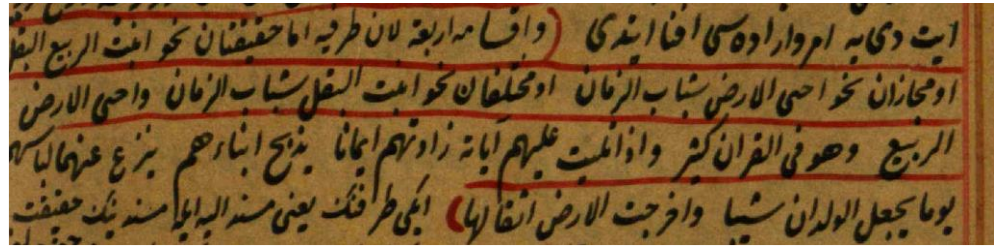 ايت دى به امر وارادهسى افنا ايتدى (واقسامه اربعة لان طرفيه اما حقيقتان نحو انبت الربيع البقل
او مجازان نحو احيى الارض شباب الزمان او مختلفان نحو انبت البقل شباب الزمان واحيى الارض
الربيع وهو فى القران كثير واذا تليت عليهم اياته زادتهم ايمانا يذبح ابناءهم ينزع عنهما لباسهما
يوما يجعل الولدان شيبا واخرجت الارض اثقالها) ايكى طرفنك يعنى مسند اليه ايله مسندينك حقيقت